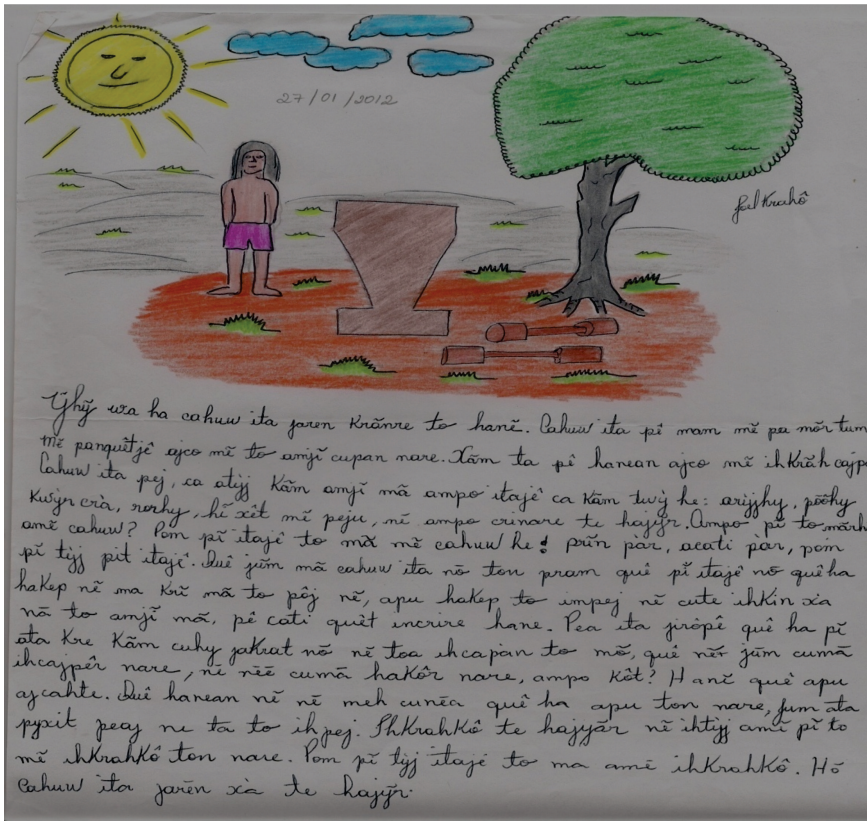 27/01/2012
Krahô
Ỹhỹ wa ha cahuw ita jaren Krãnre to hanẽ. Cahuw ita pê mam mẽ pa mõr tum
mẽ panquêtjê ajco mẽ to amjĩ cupan nare. Xãm ta pê hanean ajco mẽ ihKrãh cajpê
Cahuw ita pej, ca atỳj Kãm amjĩ mã ampo itajê ca Kãm twỳ he: arỳjhy, põohy
Kwỳr crà, rorhy, hĩ xêt mẽ peju, nẽ ampo crinare te hajỳr. Ampo pĩ to mãrh
amẽ cahuw? Pom pĩ itajê to mã mẽ cahuw he! prĩn pàr, acati pàr, pom
pĩ tỳj pit itajê. Quê jũm mã cahuw ita nõ ton pram quê pĩ itajê nõ quê ha
hakep nẽ ma Krĩ mã to pôj nẽ, apu hakep to impej nẽ cute ihkin xà
nã to amjĩ mã, pê cati quêt incrire hane. Pea ita jirôpê quê ha pĩ
ata Kre Kãm cuhy jaKrat nõ nẽ toa ihcapàn to mõ, quê nẽr jũm cumã
ihcajpêr nare, nẽ nẽẽ cumã hakôr nare, ampo Kôt? Hanẽ quê apu
ajcahte. Quê hanean nẽ nẽ meh cunẽa quê ha apu ton nare, jum ata
pyxit peaj ne ta to ihpej. IhKrahKô te hajỳr nẽ ihtỳj amẽ pĩ to
mẽ ihKrahKô ton nare. Pom pĩ tỳj itajê to ma amẽ ihKrahKô. Hõ
Cahuw ita jarẽn xà te hajỳr.